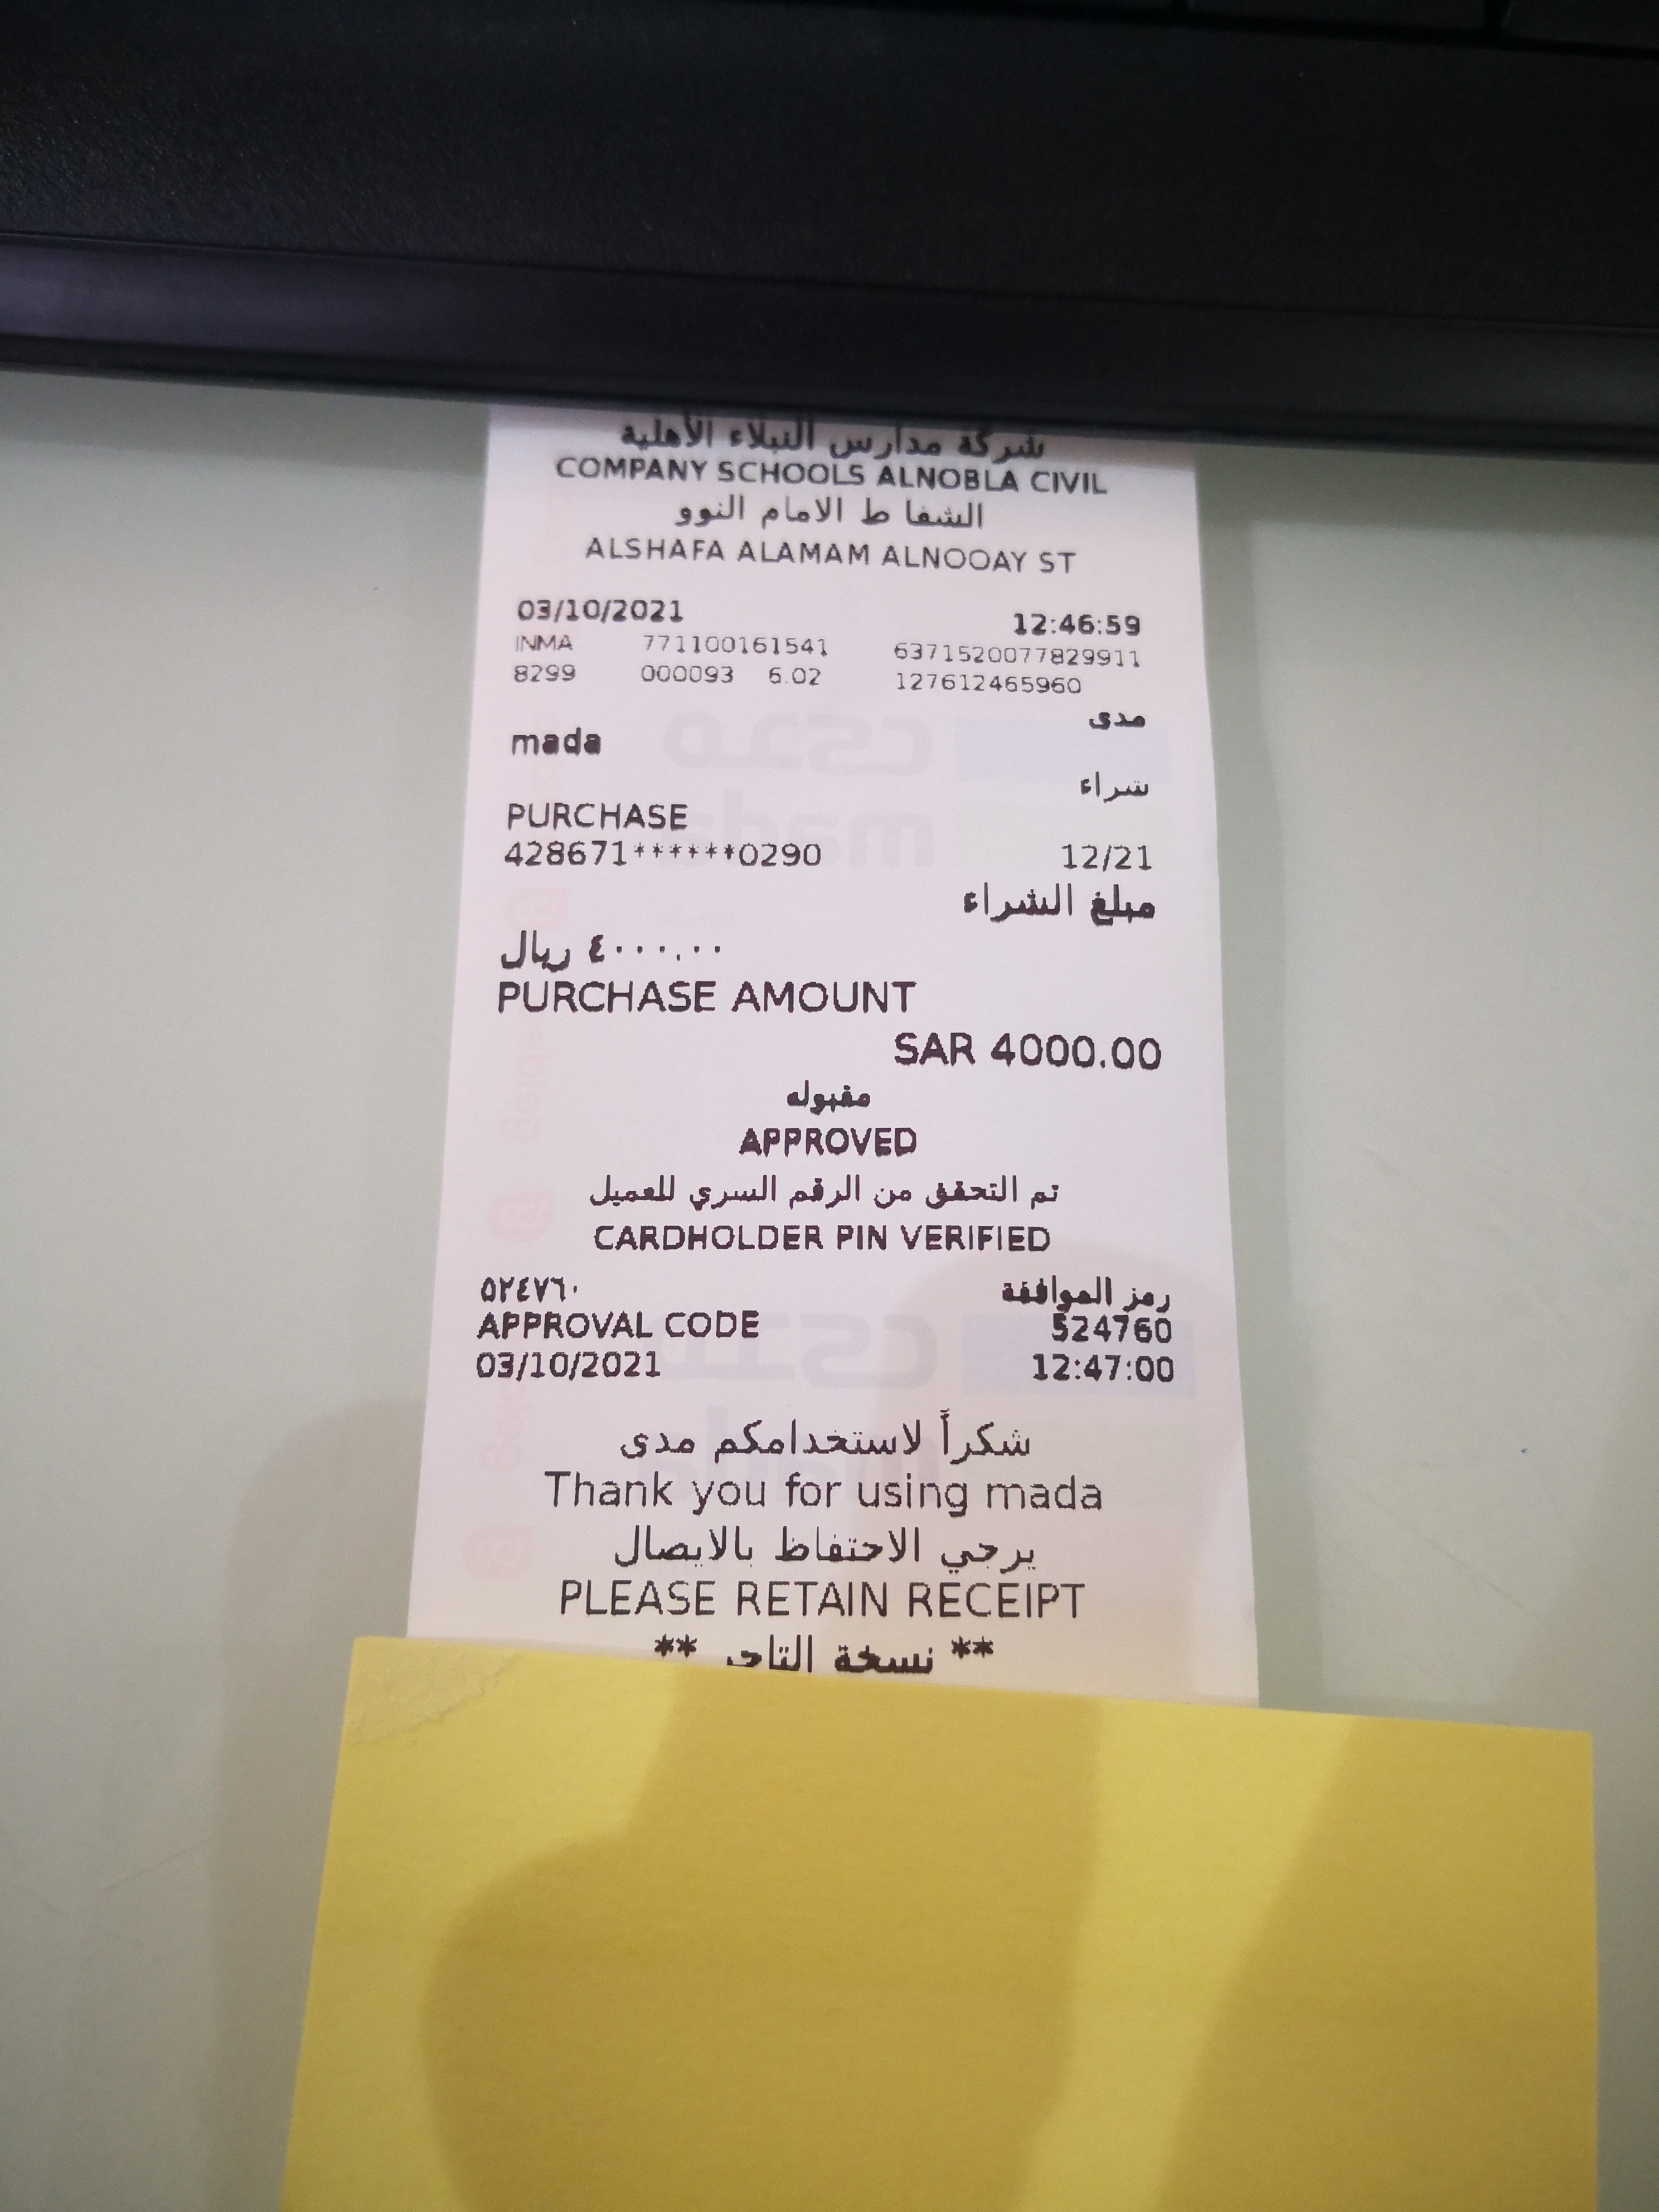 شركة مدارس النبلاء الأهلية
COMPANY SCHOOLS ALNOBLA CIVIL
الشفا ط الامام النوو
ALSHAFA ALAMAM ALNOOAY ST
03/10/2021 12:46:59
INMA 771100161541 6371520077829911
8299 000093 6.02 127612465960
مدى
mada
شراء
PURCHASE
428671******0290 12/21
مبلغ الشراء
٤٠٠٠.٠٠ ريال
PURCHASE AMOUNT
SAR 4000.00
مقبوله
APPROVED
تم التحقق من الرقم السري للعميل
CARDHOLDER PIN VERIFIED
رمز الموافقة ٥٢٤٧٦٠
APPROVAL CODE 524760
03/10/2021 12:47:00
شكراً لاستخدامكم مدى
Thank you for using mada
يرجي الاحتفاظ بالايصال
PLEASE RETAIN RECEIPT
** نسخة التاجر **